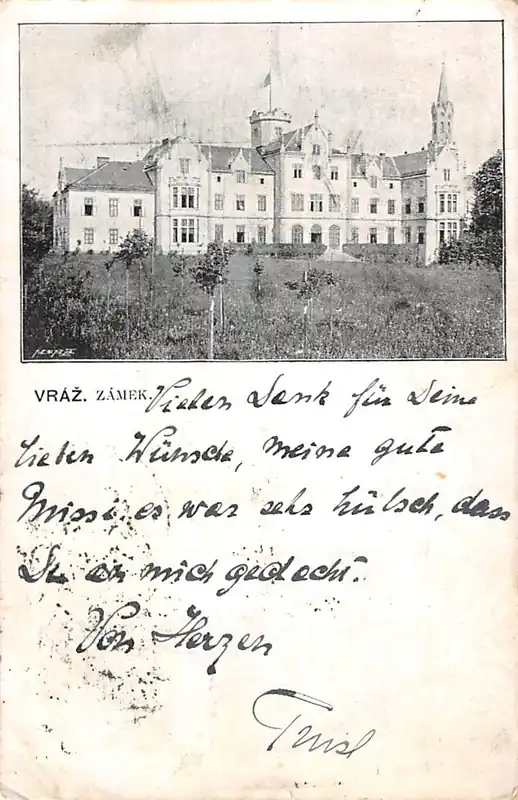 VRÁŽ. ZÁMEK.
Vielen Dank für Deine
lieben Wünsche, meine gute
Missi es war sehr hübsch, dass
Du an mich gedacht.
Von Herzen